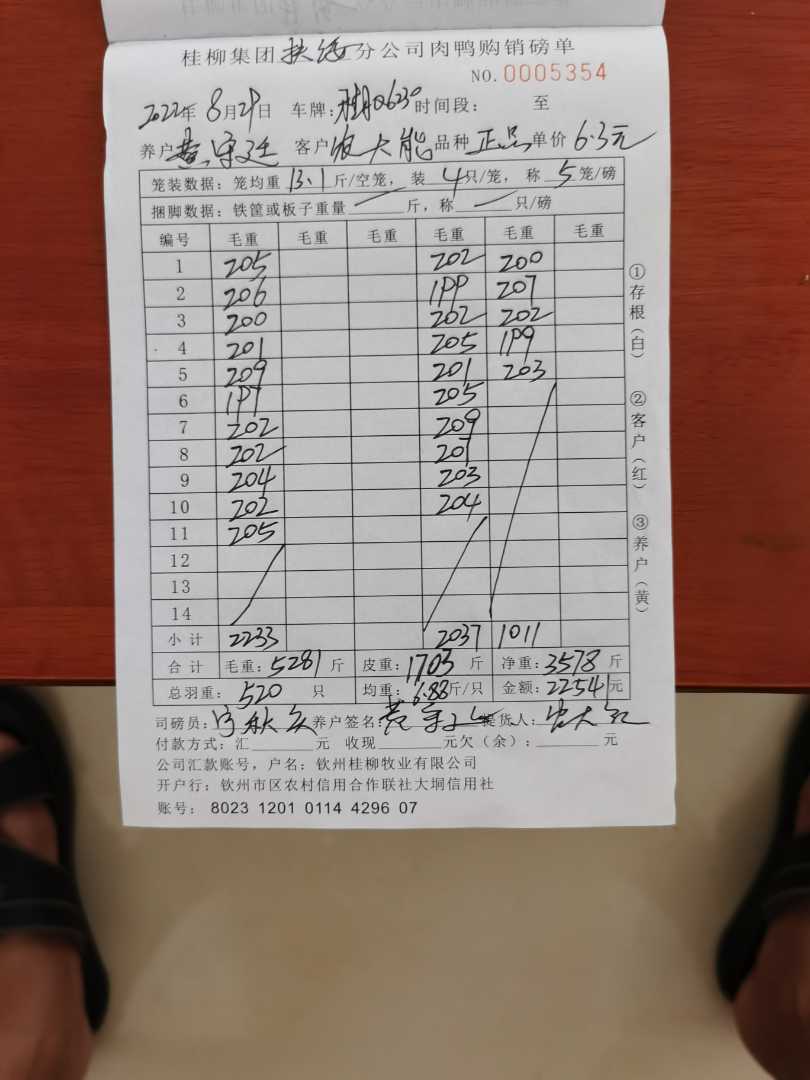 桂柳集团扶绥分公司肉鸭购销磅单
NO.0005354
2022年8月29日 车牌: 06230 时间段: 至
养户 黄 客户 农大能 品种 正品 单价 6.3元
笼装数据: 笼均重 13.1 斤/空笼, 装 4 只/笼, 称 5 笼/磅
捆脚数据: 铁筐或板子重量 — 斤, 称 — 只/磅
编号 毛重 毛重 毛重 毛重 毛重 毛重
1 205 202 200
2 206 199 207
3 200 202 202
4 201 205 199
5 209 201 203
6 197 205
7 202 209
8 202 207
9 204 203
10 202 204
11 205
12
13
14
小计 2233 2037 1011
合计 毛重: 5281 斤 皮重: 1703 斤 净重: 3578 斤
总羽重: 520 只 均重: 6.88 斤/只 金额: 22541 元
司磅员: 秋 养户签名: 黄 提货人: 农大
付款方式: 汇 元 收现 元欠(余): 元
公司汇款账号, 户名: 钦州桂柳牧业有限公司
开户行: 钦州市区农村信用合作联社大垌信用社
账号: 8023 1201 0114 4296 07
①存根(白)
②客户(红)
③养户(黄)